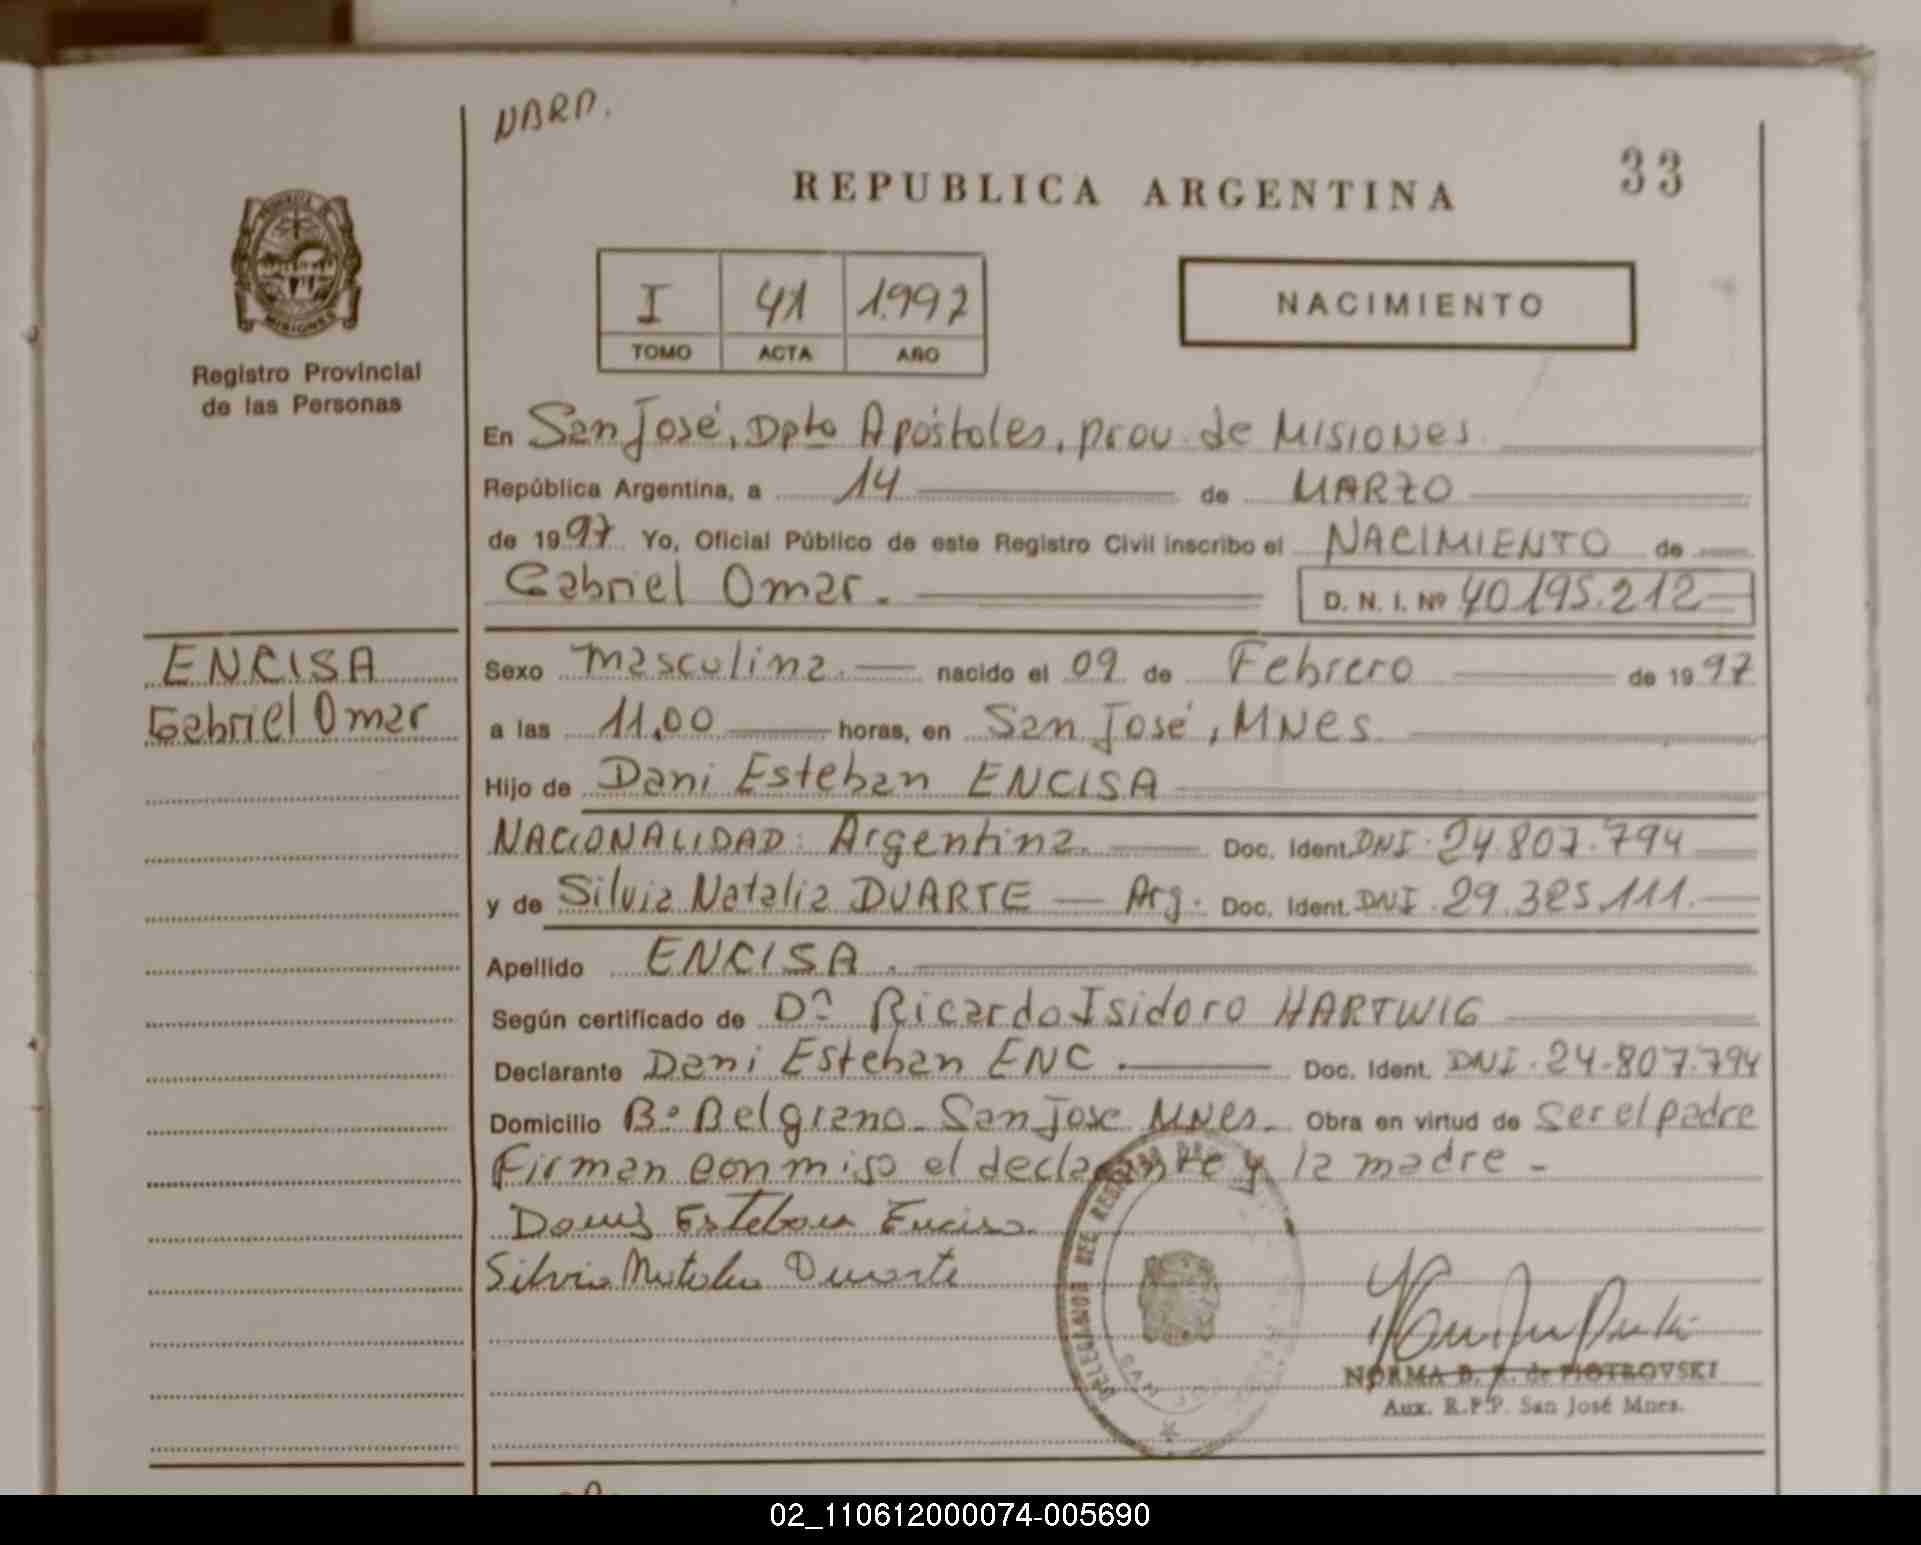 NBRD.
REPUBLICA ARGENTINA
33
MISIONES
Registro Provincial
de las Personas
I 41 1.997
TOMO ACTA AÑO
NACIMIENTO
En San José, Dpto Apóstoles, prov. de Misiones.
República Argentina, a 14 de MARZO
de 1997 Yo, Oficial Público de este Registro Civil inscribo el NACIMIENTO de
Gabriel Omar. D. N. I. Nº 40.195.212
ENCISA
Gabriel Omar
Sexo masculina. nacido el 09 de Febrero de 1997
a las 11,00 horas, en San José, MNes.
Hijo de Dani Esteban ENCISA
NACIONALIDAD: Argentina. Doc. Ident. DNI. 24.807.794
y de Silvia Natalia DUARTE — Arg. Doc. Ident. DNI. 29.325.111.
Apellido ENCISA.
Según certificado de Dº Ricardo Isidoro HARTWIG
Declarante Dani Esteban ENC. Doc. Ident. DNI. 24.807.794
Domicilio Bº Belgrano. San Jose MNes. Obra en virtud de ser el padre
Firman conmigo el declarante y la madre -
Esteban
Silvia Natalia Duarte
NORMA B. R. de PIOTROVSKI
Aux. R.P.P. San José Mnes.
02_110612000074-005690